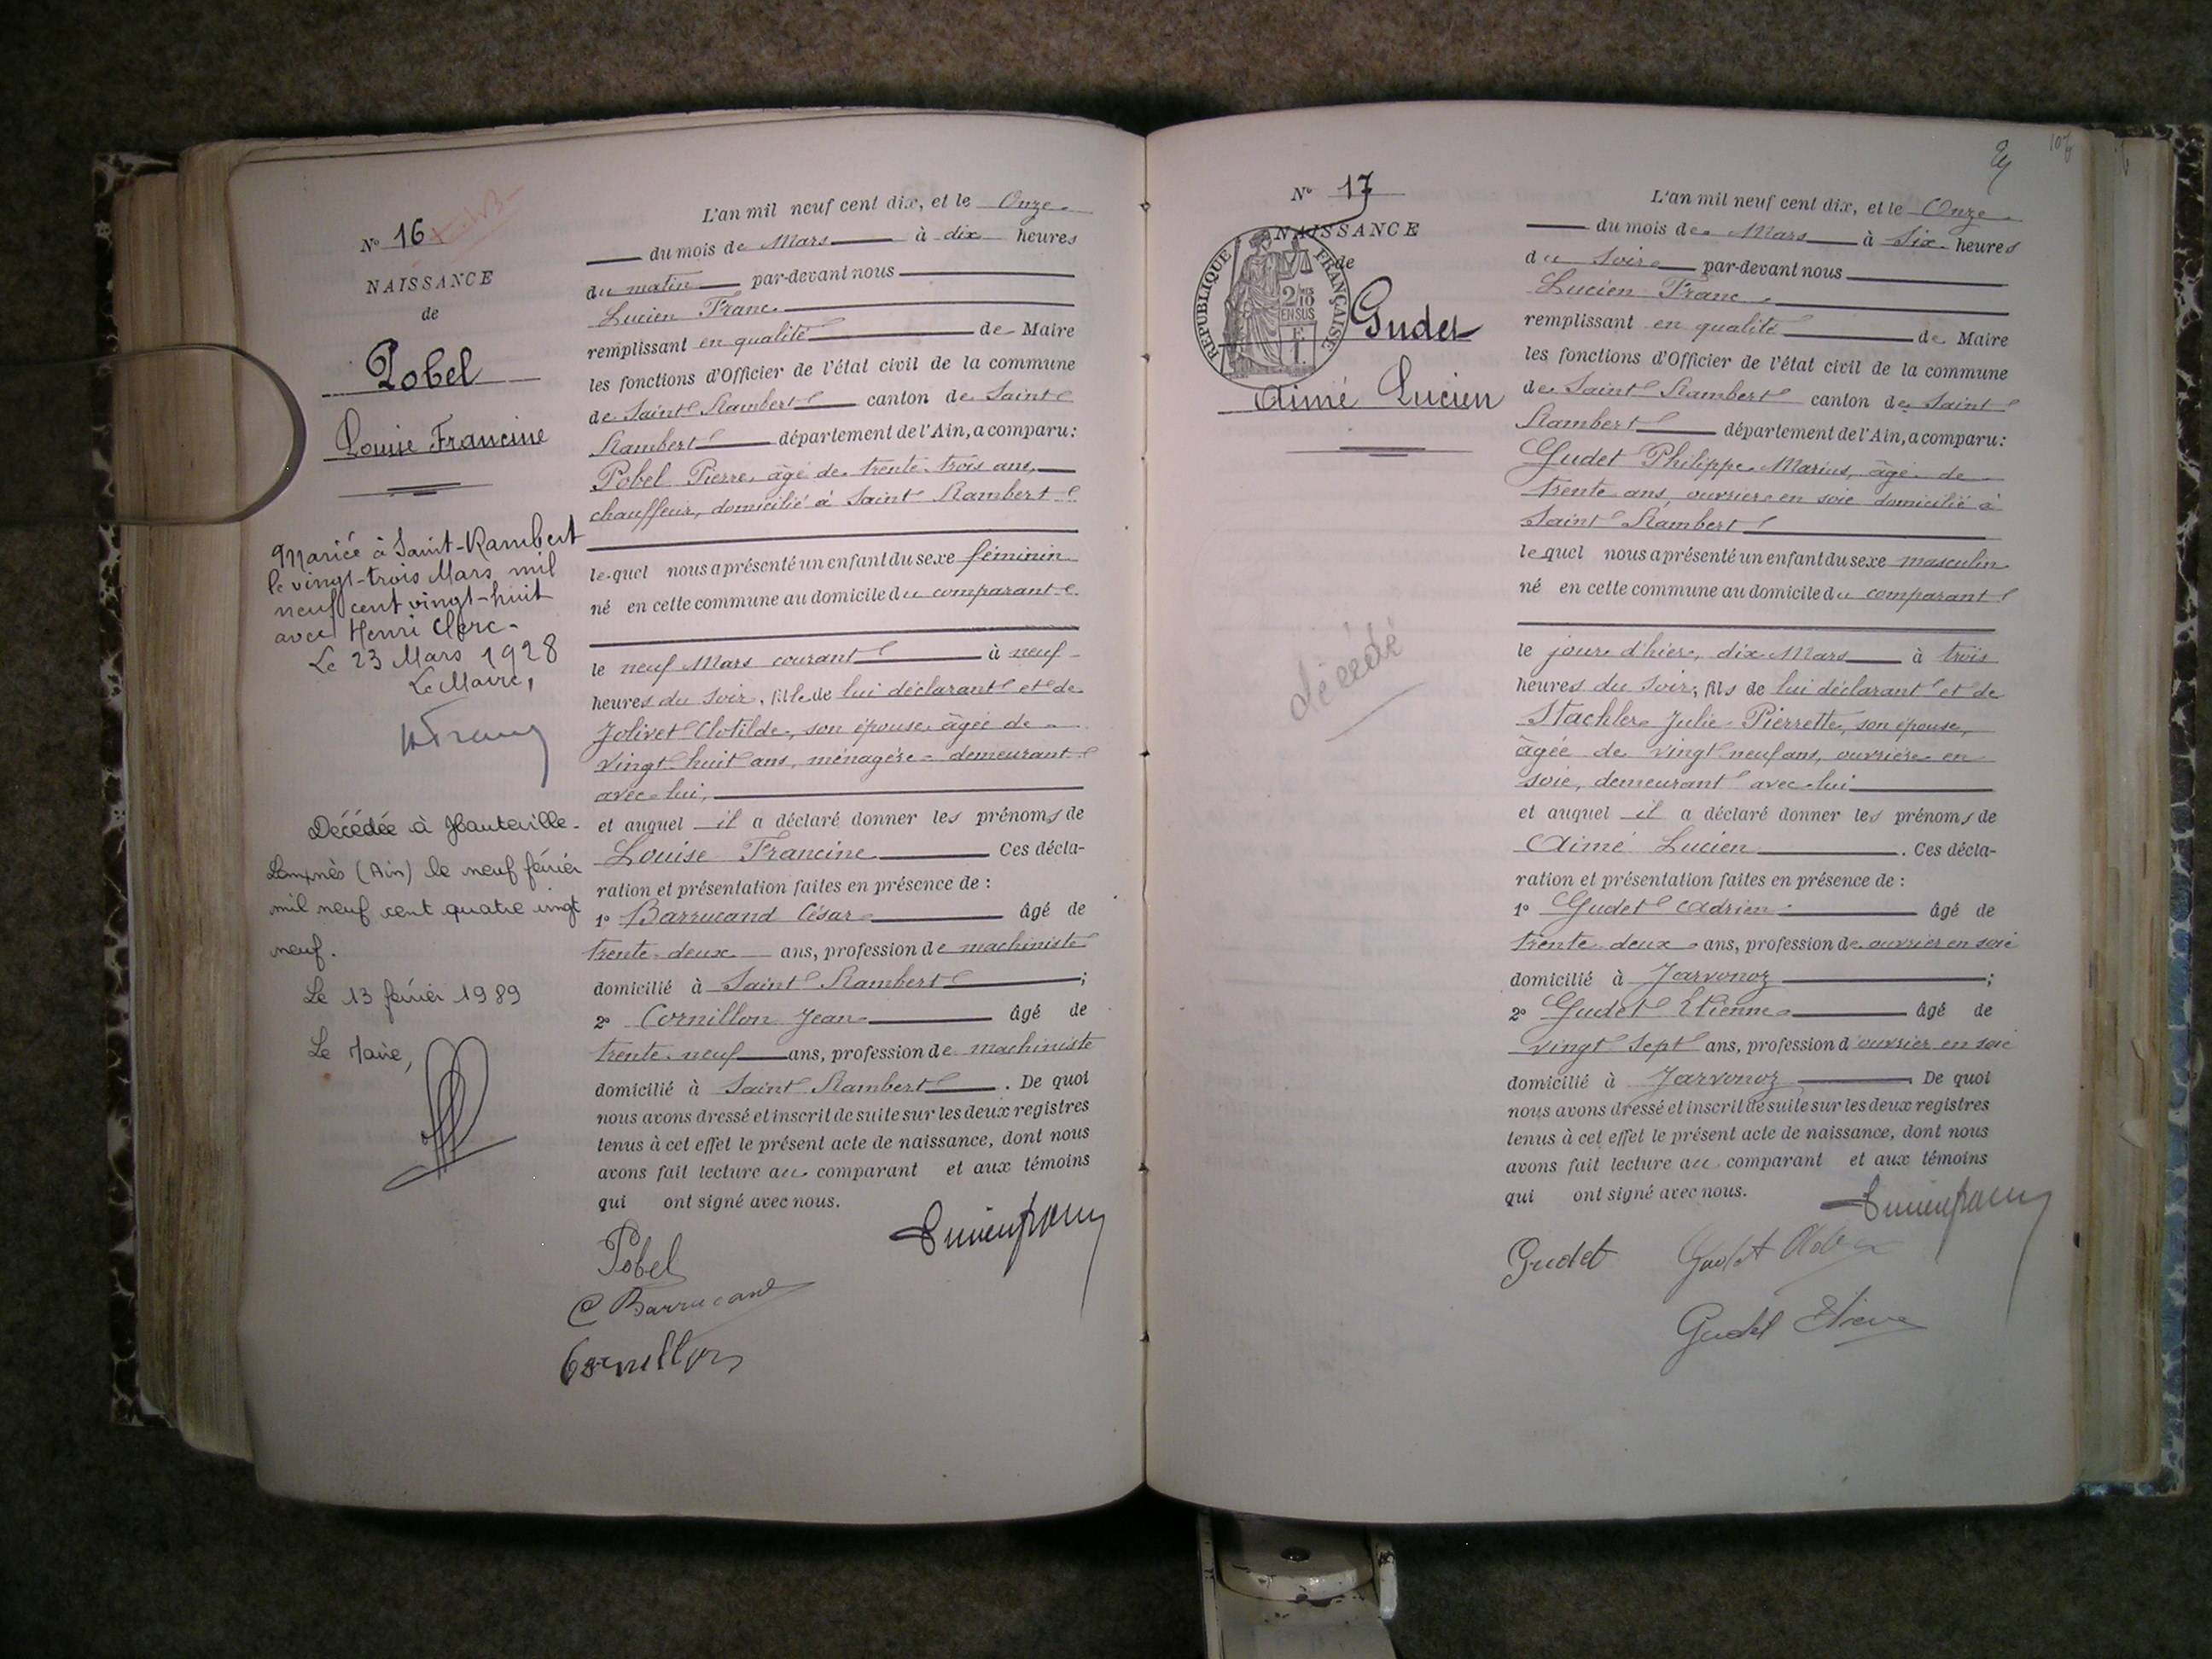 N° 16
NAISSANCE
de
Pobel
Louise Francine
Mariée à Saint-Rambert
le vingt-trois Mars mil
neuf cent vingt-huit
avec Henri Clerc-
Le 23 Mars 1928
Le Maire,
Décédée à Hauteville-
Lompnès (Ain) le neuf février
mil neuf cent quatre vingt
neuf.
Le 13 février 1989
Le Maire,
L'an mil neuf cent dix, et le Onze
du mois de Mars à dix heures
du matin par-devant nous
Lucien Franc
remplissant en qualité de Maire
les fonctions d'Officier de l'état civil de la commune
de Saint Rambert canton de Saint
Rambert département de l'Ain, a comparu:
Pobel Pierre, âgé de trente-trois ans,
chauffeur, domicilié à Saint Rambert
lequel nous a présenté un enfant du sexe féminin
né en cette commune au domicile du comparant
le neuf Mars courant à neuf
heures du soir, fille de lui déclarant et de
Jolivet Clotilde, son épouse âgée de
vingt huit ans, ménagère demeurant
avec lui,
et auquel il a déclaré donner les prénoms de
Louise Francine Ces décla-
ration et présentation faites en présence de :
1° Barrucand César âgé de
trente-deux ans, profession de machiniste
domicilié à Saint Rambert ;
2° Cornillon Jean âgé de
trente-neuf ans, profession de machiniste
domicilié à Saint Rambert . De quoi
nous avons dressé et inscrit de suite sur les deux registres
tenus à cet effet le présent acte de naissance, dont nous
avons fait lecture au comparant et aux témoins
qui ont signé avec nous.
Pobel
C Barrucand
Cornillon
107
N° 17
NAISSANCE
de
REPUBLIQUE FRANÇAISE
2/10
EN SUS
Gudet
Aimé Lucien
décédé
L'an mil neuf cent dix, et le Onze
du mois de Mars à Six heures
du Soir par-devant nous
Lucien Franc
remplissant en qualité de Maire
les fonctions d'Officier de l'état civil de la commune
de Saint Rambert canton de Saint
Rambert département de l'Ain, a comparu:
Gudet Philippe Marius, âgé de
trente ans, ouvrier en soie domicilié à
Saint Rambert
lequel nous a présenté un enfant du sexe masculin
né en cette commune au domicile du comparant
le jour d'hier, dix Mars à trois
heures du Soir, fils de lui déclarant et de
Stachler Julie Pierrette, son épouse,
âgée de vingt neuf ans, ouvrière en
soie, demeurant avec lui
et auquel il a déclaré donner les prénoms de
Aimé Lucien . Ces décla-
ration et présentation faites en présence de :
1° Gudet Adrien âgé de
trente deux ans, profession de ouvrier en soie
domicilié à Javornoz ;
2° Gudet Etienne âgé de
vingt sept ans, profession d'ouvrier en soie
domicilié à Javornoz . De quoi
nous avons dressé et inscrit de suite sur les deux registres
tenus à cet effet le présent acte de naissance, dont nous
avons fait lecture au comparant et aux témoins
qui ont signé avec nous.
Gudet
Gudet
Gudet Etienne